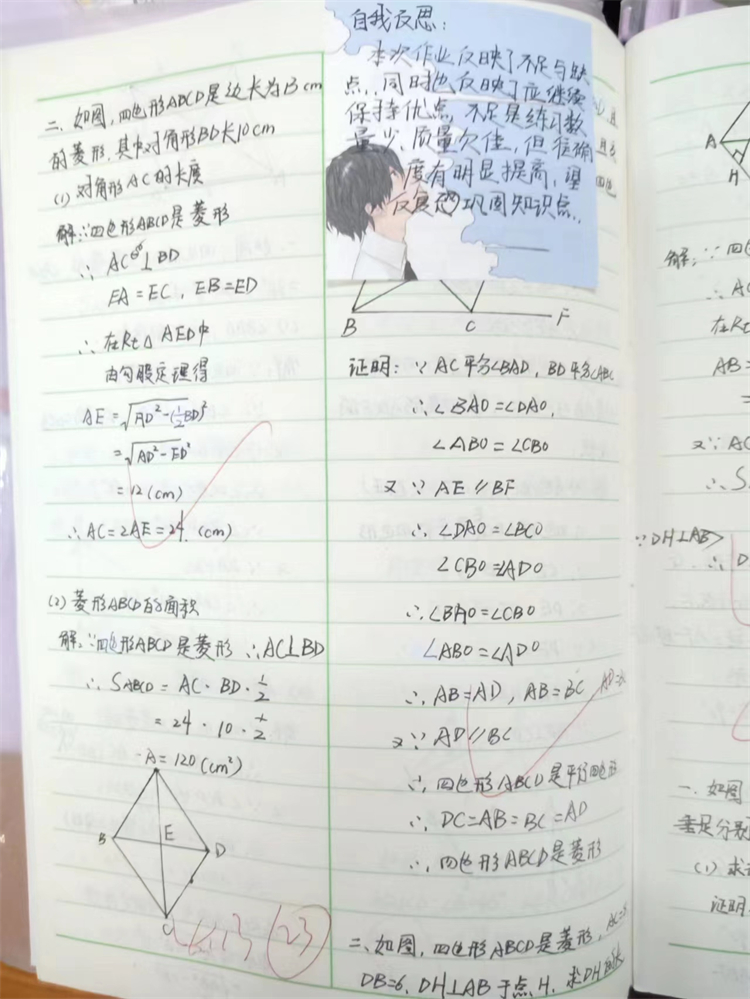 二、如图,四边形ABCD是边长为13cm
的菱形,其中对角形BD长10cm
(1) 对角形AC的长度
解:∵四边形ABCD是菱形
∴ AC⊥BD
EA=EC,EB=ED
∴在Rt△AED中
由勾股定理得
AE=√AD²-(½BD)²
=√AD²-ED²
=12(cm)
∴AC=2AE=24.(cm)
(2) 菱形ABCD的面积
解:∵四边形ABCD是菱形 ∴AC⊥BD
∴ SABCD = AC·BD·½
= 24·10·½
=120(cm²)
A
B
E
D
C
6.13
23
自我反思:
本次作业反映了不足与缺
点,同时也反映了应继续
保持优点,不足是练习数
量少,质量欠佳,但准确
度有明显提高,望
反复巩固知识点.
B C F
证明:∵AC平分∠BAD,BD平分∠ABC
∴∠BAO=∠DAO,
∠ABO=∠CBO
又∵ AE∥BF
∴∠DAO=∠BCO
∠CBO=∠ADO
∴∠BAO=∠CBO
∠ABO=∠ADO
∴AB=AD,AB=BC
又∵ AD∥BC
∴四边形ABCD是平行四边形
∴DC=AB=BC=AD
∴四边形ABCD是菱形
二、如图,四边形ABCD是菱形,AC=8
DB=6,DH⊥AB于点H,求DH的长
A
H
解:∵四
∴A
在Rt
AB=
=
又∵AC
∴S
∵DH⊥AB
∴D
一.如图
垂足分别
(1)求
证明